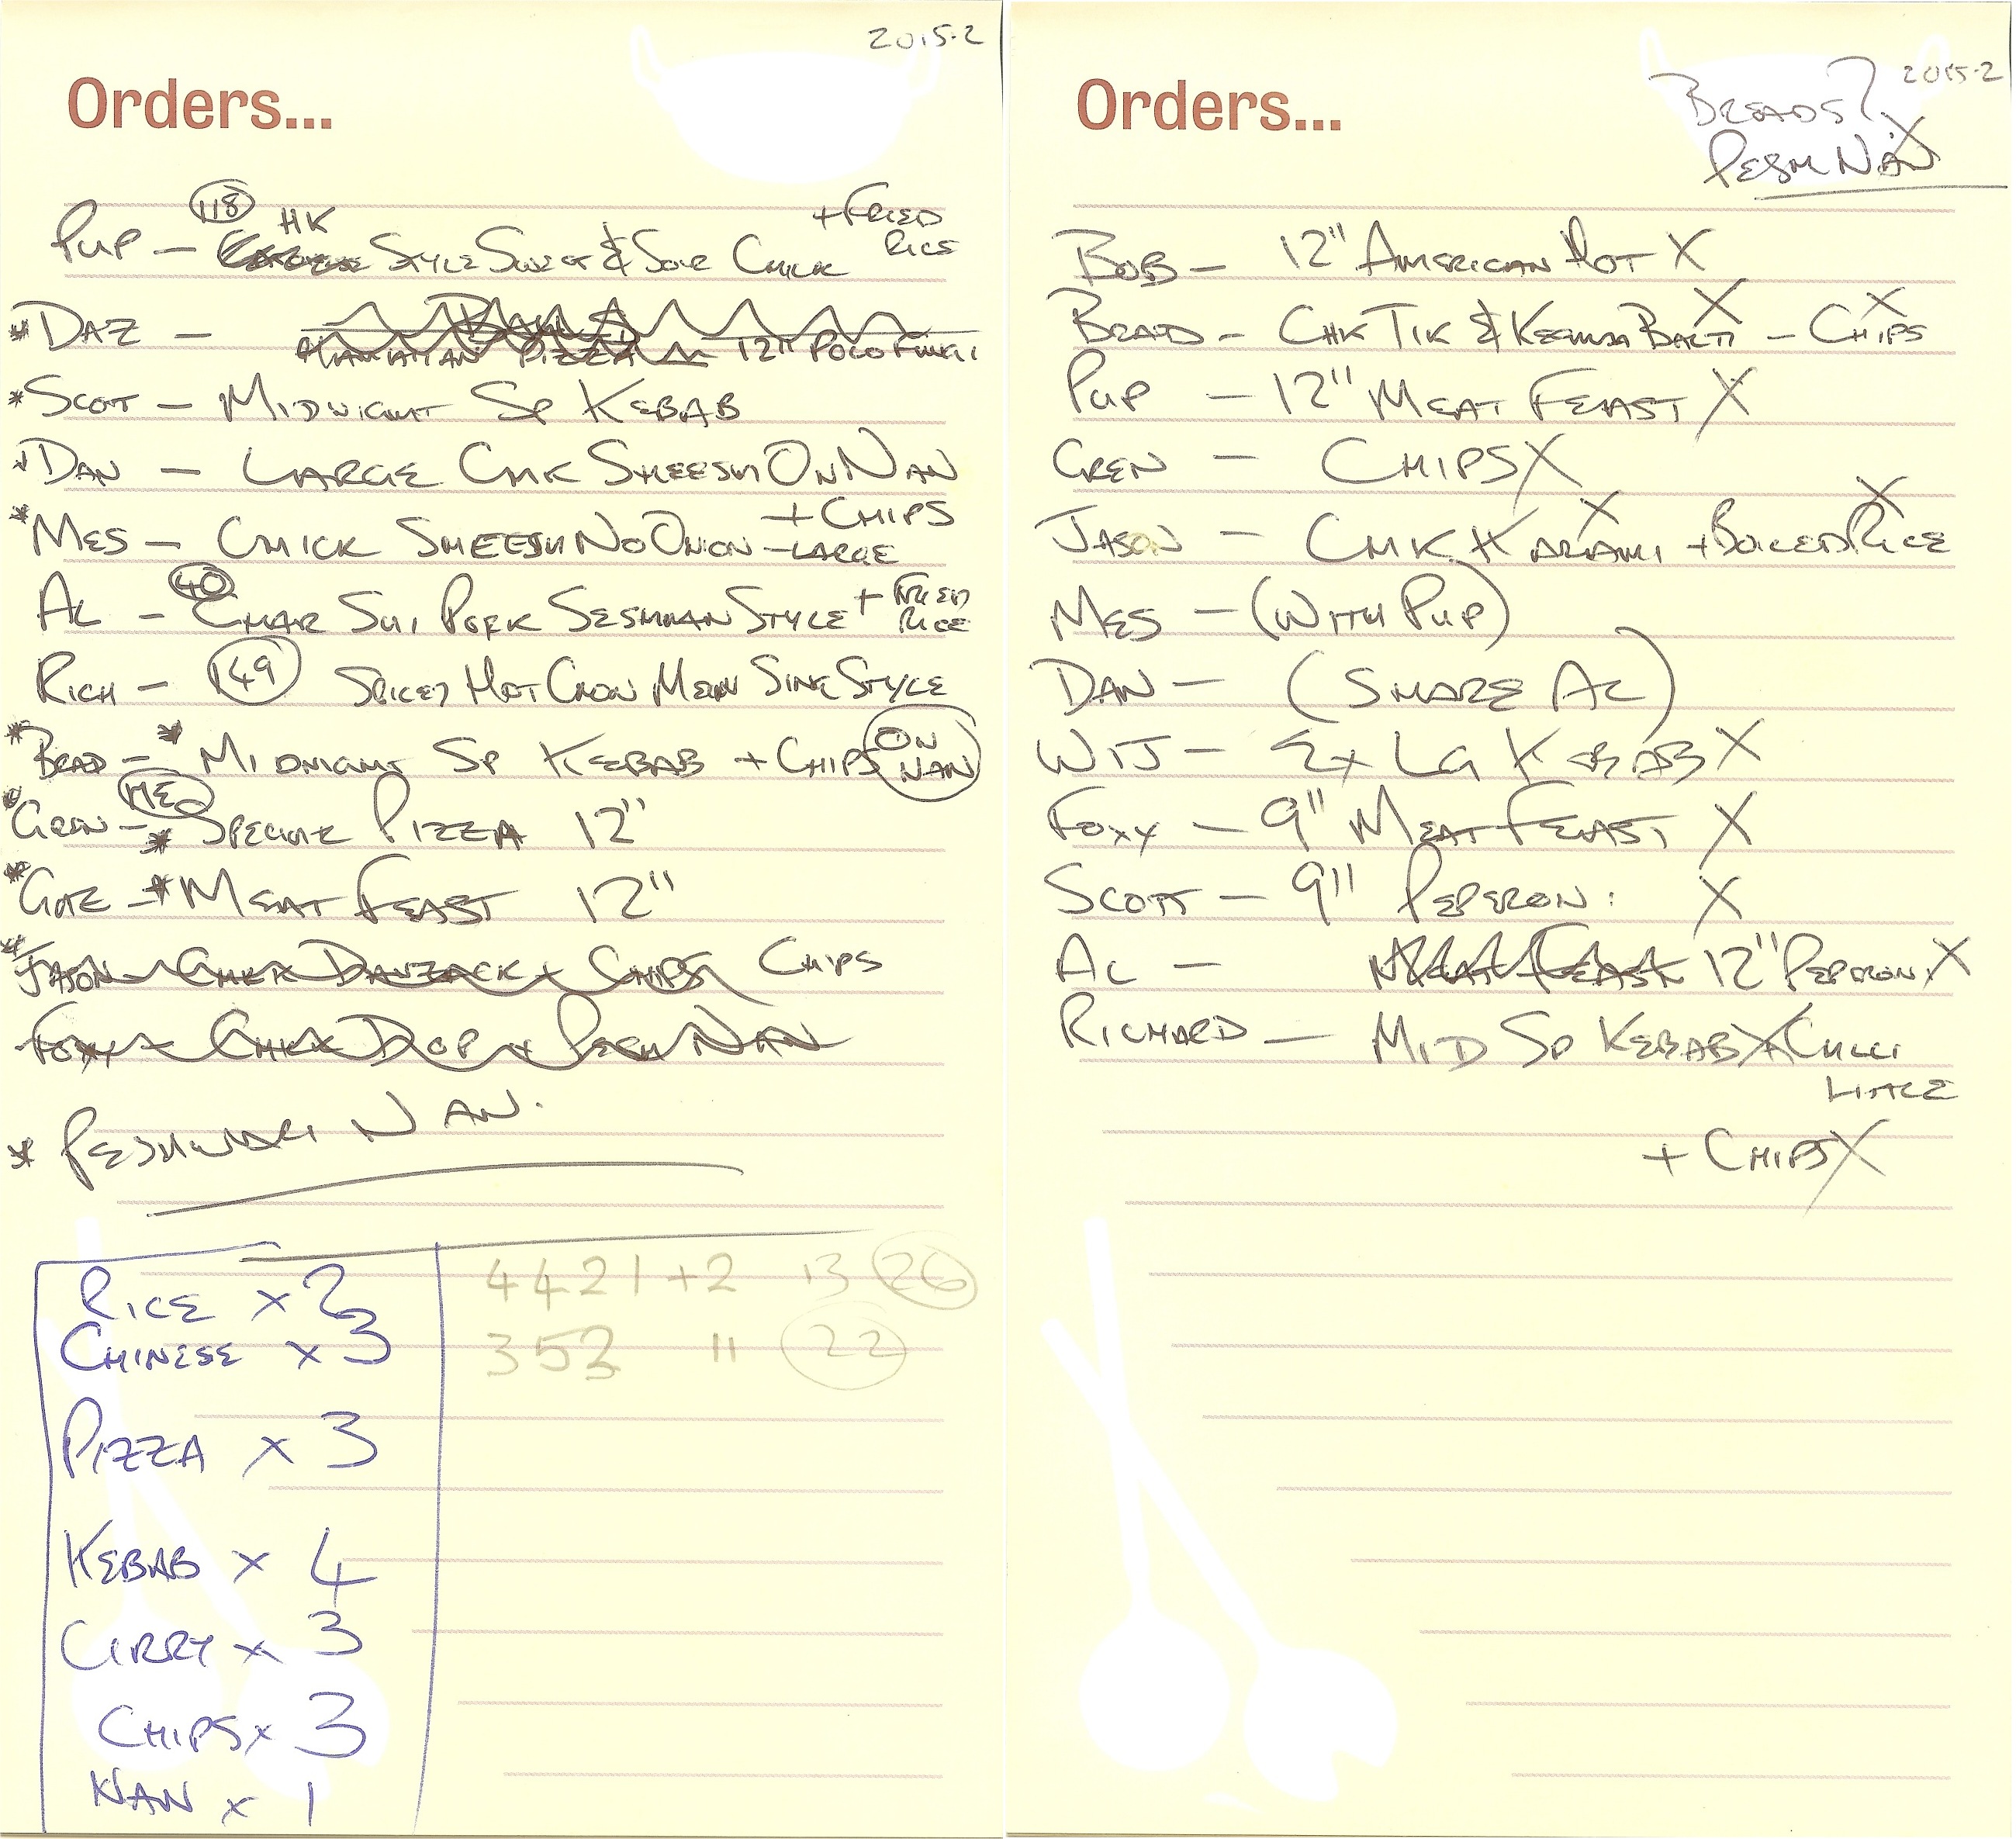 2015.2
Orders...
118 HK + FRIED
PUP - STYLE SWEET & SOUR CHICK RICE
* DAZ -
MANHATTAN PIZZA 12" POCO FUNGI
* SCOT - MIDNIGHT SP KEBAB
* DAN - LARGE CHK SHEESH ON NAN
+ CHIPS
* MES - CHICK SHEESH NO ONION - LARGE
40 + FRIED
AL - CHAR SUI PORK SESHUAN STYLE RICE
RICH - 149 SPICEY HOT CHOW MEIN SING STYLE
* BRAD - * MIDNIGHT SP KEBAB + CHIPS ON NAN
* GREN - * SPECIAL PIZZA 12"
* GAZ - * MEAT FEAST 12"
* JASON - CHK DANZACK + CHIPS CHIPS
FOXY - CHK DOP + PESH NAN
* PESHWARI NAN.
RICE x 2
CHINESE x 3
PIZZA x 3
KEBAB x 4
CURRY x 3
CHIPS x 3
NAN x 1
4421 +2 13 26
353 11 22
2015.2
Orders...
BREADS?
PESH NAN X
BOB - 12" AMERICAN HOT X
BRAD - CHK TIK & KEEMA BALTI X - CHIPS X
PUP - 12" MEAT FEAST X
GREN - CHIPS X
JASON - CHK KARAHI X + BOILED RICE X
MES - (WITH PUP)
DAN - (SHARE AL)
WIJ - EX LG KEBAB X
FOXY - 9" MEAT FEAST X
SCOTT - 9" PEPERONI X
AL - MEAT FEAST 12" PEPERONI X
RICHARD - MID SP KEBAB X CHILLI
LITTLE
+ CHIPS X